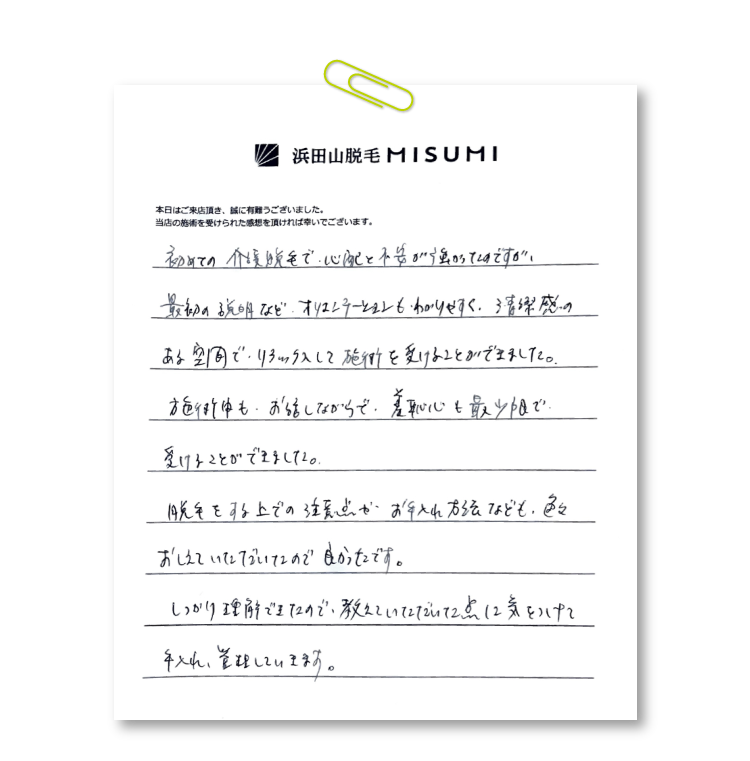 浜田山脱毛 MISUMI
本日はご来店頂き、誠に有難うございました。
当店の施術を受けられた感想を頂ければ幸いでございます。
初めての 介護脱毛で、心配と不安が強かったのですが、
最初の説明など、オリエンテーションも、わかりやすく、清潔感の
ある空間で、リラックスして施術を受けることができました。
施術中も、お話しながらで、羞恥心も最少限で
受けることができました。
脱毛をする上での注意点や お手入れ方法なども、色々
おしえていただいたので良かったです。
しっかり理解できたので、教えていただいた点に気をつけて
手入れ、管理していきます。